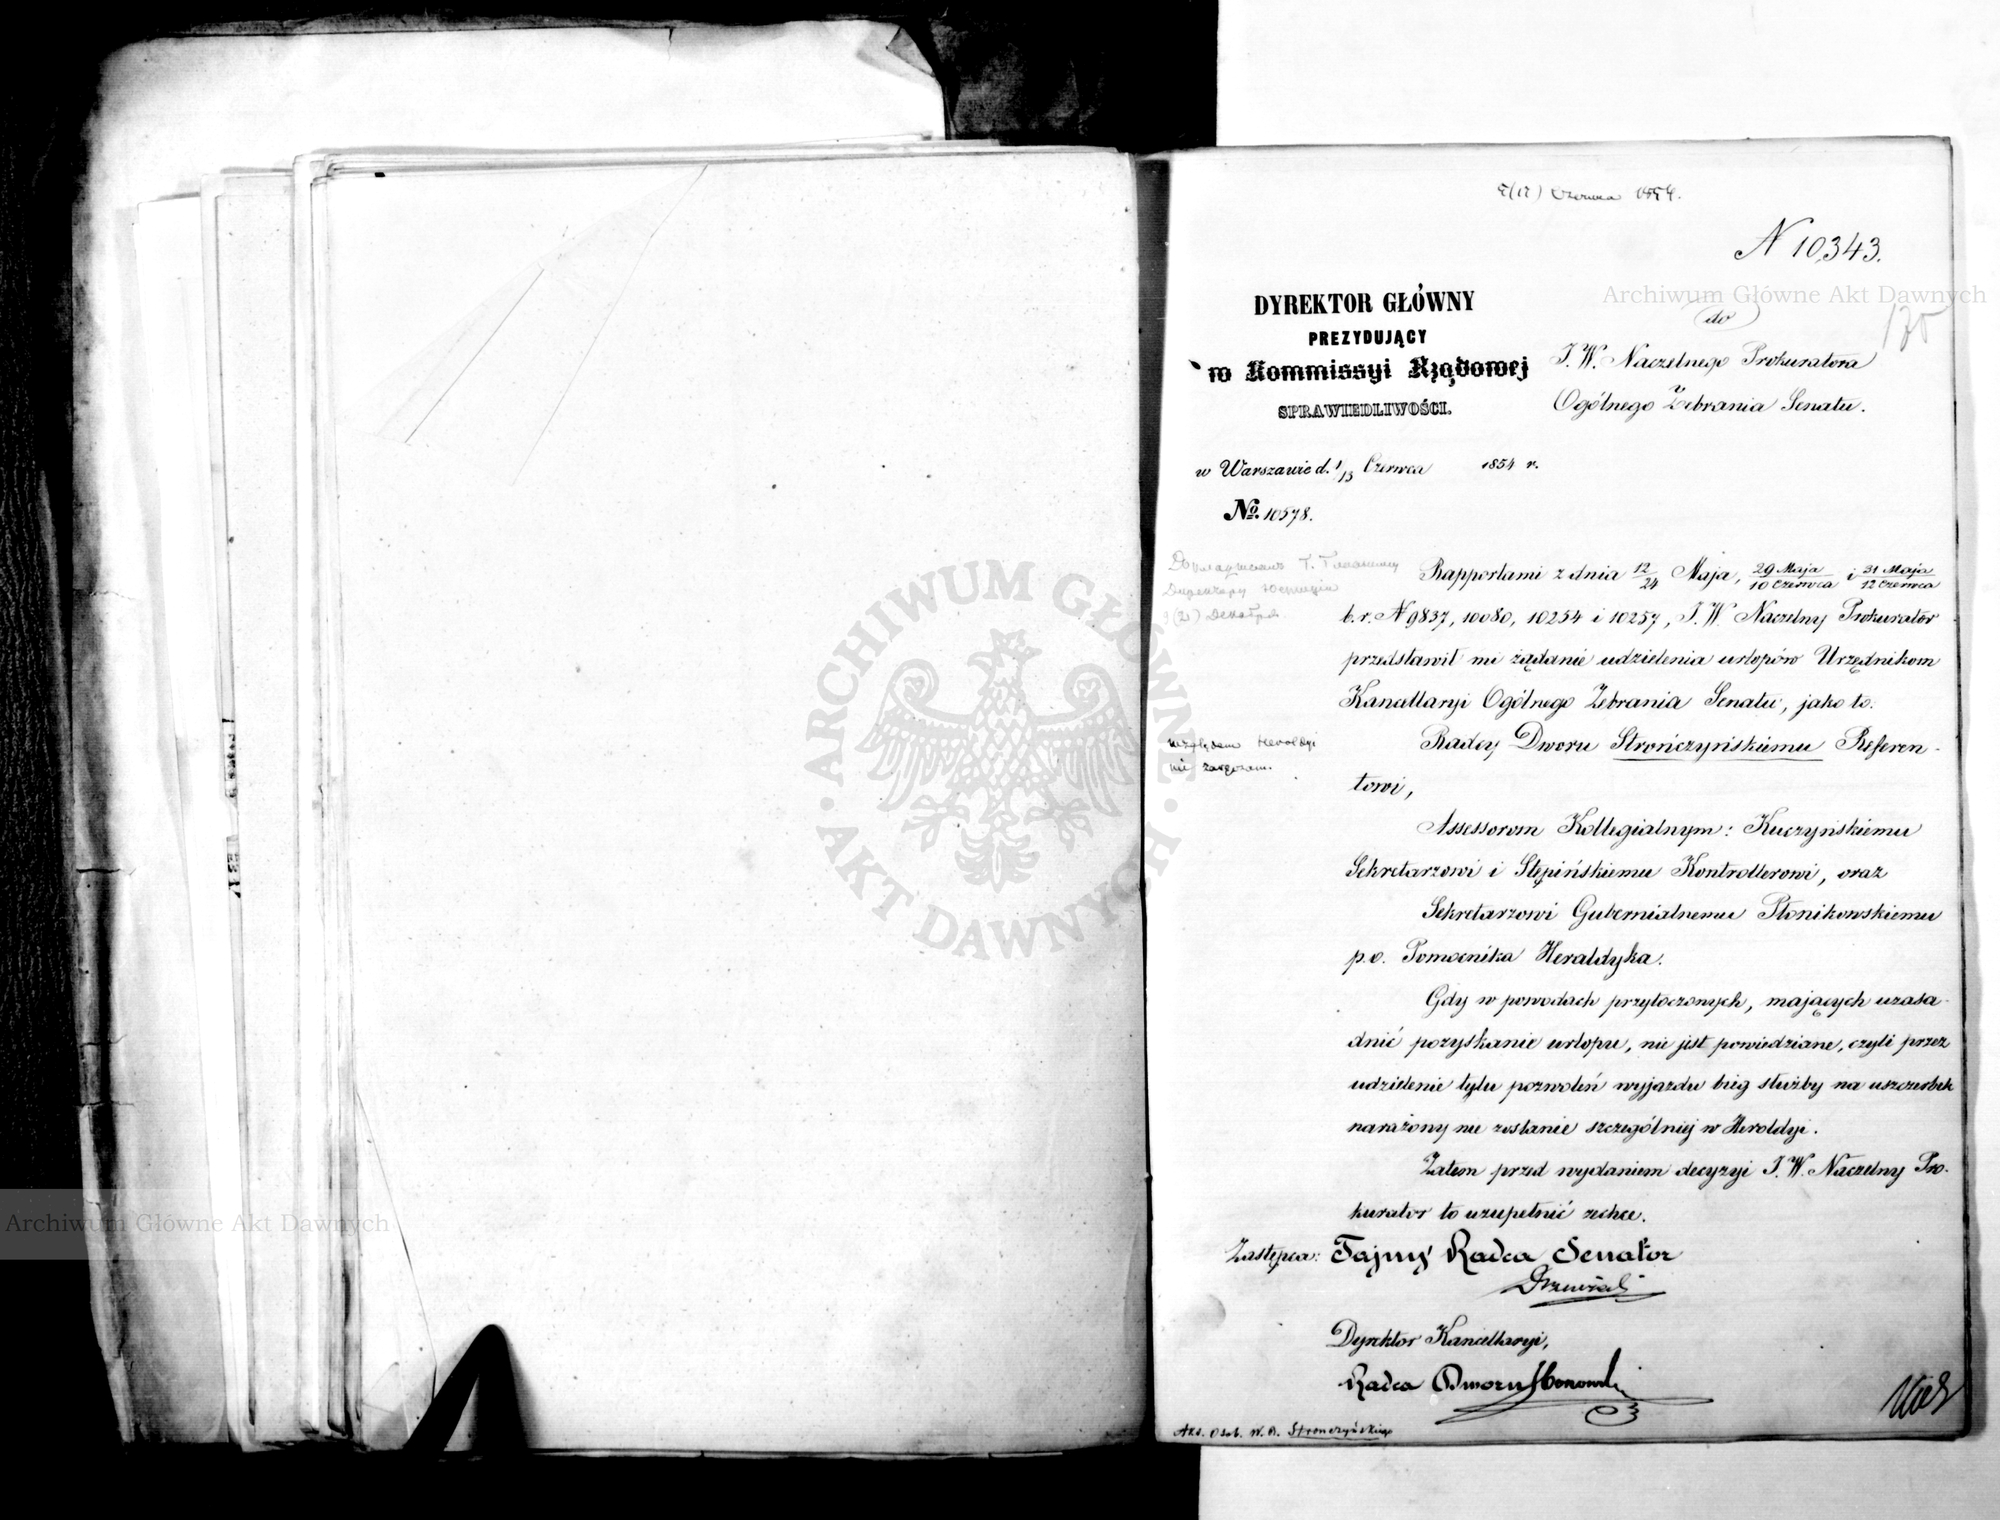 5(17) Czerwca 1854.
N 10,343.
DYREKTOR GŁÓWNY
PREZYDUJĄCY
w Kommissyi Rządowej
SPRAWIEDLIWOŚCI.
do
J. W. Naczelnego Prokuratora
Ogólnego Zebrania Senatu.
w Warszawie d. 1/13 Czerwca 1854 r.
No. 10578.
Rapportami z dnia 12/24 Maja, 29 Maja/10 Czerwca i 31 Maja/12 Czerwca
b. r. N 9837, 10080, 10254 i 10257, J. W. Naczelny Prokurator
przedstawił mi żądanie udzielenia urlopów Urzędnikom
Kancellaryi Ogólnego Zebrania Senatu, jako to:
Radcy Dworu Strończyńskiemu Referen-
towi,
względem Heroldyi
nie
Assessorom Kollegialnym: Kuczyńskiemu
Sekretarzowi i Stępińskiemu Kontrollerowi, oraz
Sekretarzowi Gubernialnemu Płonikowskiemu
p.o. Pomocnika Heraldyka.
Gdy w powodach przytoczonych, mających uzasa-
dnić pozyskanie urlopu, nie jest powiedziane, czyli przez
udzielenie tylu pozwoleń wyjazdu bieg służby na uszczerbek
narażony nie zostanie szczególniej w Heroldyi.
Zatem przed wydaniem decyzyi J. W. Naczelny Pro-
kurator to uzupełnić zechce.
Zastępca: Tajny Radca Senator
Dyrektor Kancellaryi,
Radca Dworu
Akt. Osob. W. R. Stronczyńskiego
Archiwum Główne Akt Dawnych
Archiwum Główne Akt Dawnych
ARCHIWUM GŁÓWNE
AKT DAWNYCH